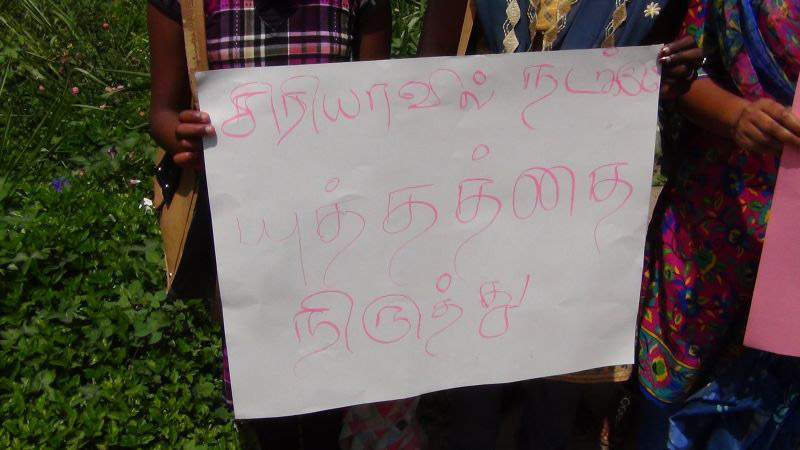 சிரியாவில் நடக்கும்
யுத்தத்தை
நிறுத்து